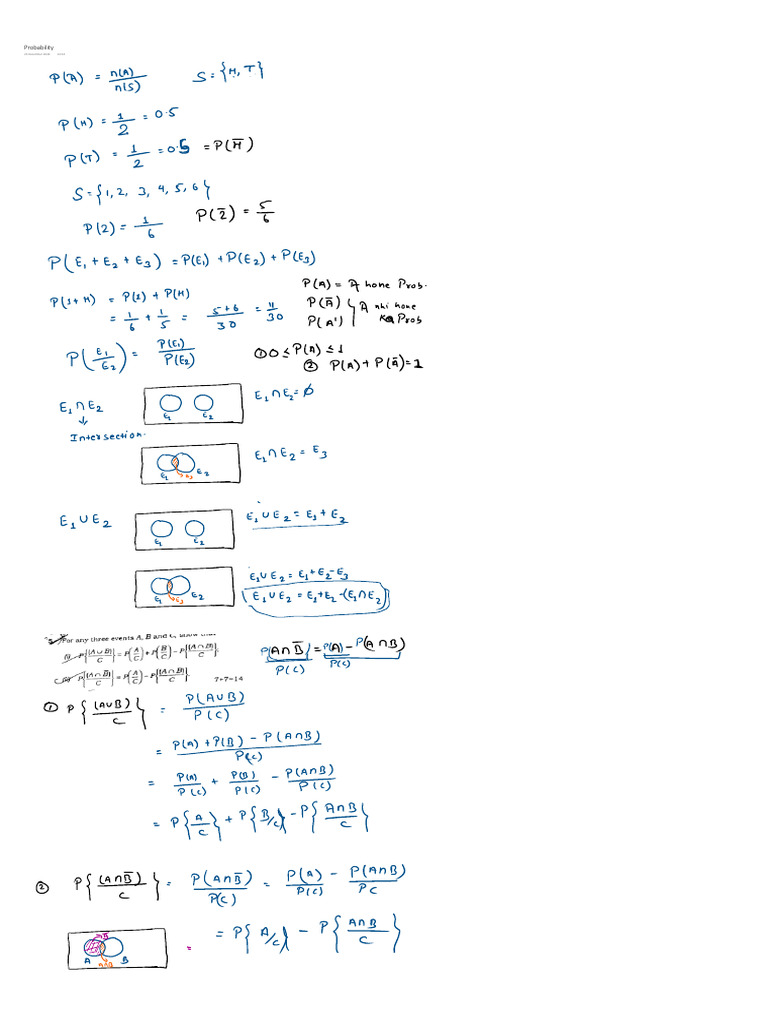 Probability
P(A) = n(A)/n(S) S = {H, T}
P(H) = 1/2 = 0.5
P(T) = 1/2 = 0.5 = P(H̅)
S = {1, 2, 3, 4, 5, 6}
P(2) = 1/6 P(2̅) = 5/6
P(E₁ + E₂ + E₃) = P(E₁) + P(E₂) + P(E₃)
P(A) = A hone Prob.
P(A̅) } A nhi hone
P(A') } Prob
= 1/6 + 1/5 = 5+6/30 = 11/30
P(E₁/E₂) = P(E₁)/P(E₂)
① 0 ≤ P(A) ≤ 1
② P(A) + P(A̅) = 1
E₁ ∩ E₂
↓
Intersection.
E₁ E₂
E₁ ∩ E₂ = ϕ
E₁ E₂
E₁ ∩ E₂ = E₃
E₁ ∪ E₂
E₁ E₂
E₁ ∪ E₂ = E₁ + E₂
E₁ E₃ E₂
E₁ ∪ E₂ = E₁ + E₂ - E₃
E₁ ∪ E₂ = E₁ + E₂ - (E₁ ∩ E₂)
For any three events A, B and C, show that
(i) P{(A∪B)/C} = P(A/C) + P(B/C) - P{(A∩B)/C}.
(ii) P{(A∩B̅)/C} = P(A/C) - P{(A∩B)/C}. 7+7=14
P(A∩B̅)/P(C) = P(A) - P(A∩B)/P(C)
① P{(A∪B)/C} = P(A∪B)/P(C)
= P(A) + P(B) - P(A∩B)/P(C)
= P(A)/P(C) + P(B)/P(C) - P(A∩B)/P(C)
= P{A/C} + P{B/C} - P{A∩B/C}
② P{(A∩B̅)/C} = P(A∩B̅)/P(C) = P(A)/P(C) - P(A∩B)/PC
= P{A/C} - P{A∩B/C}
A B
A∩B
=